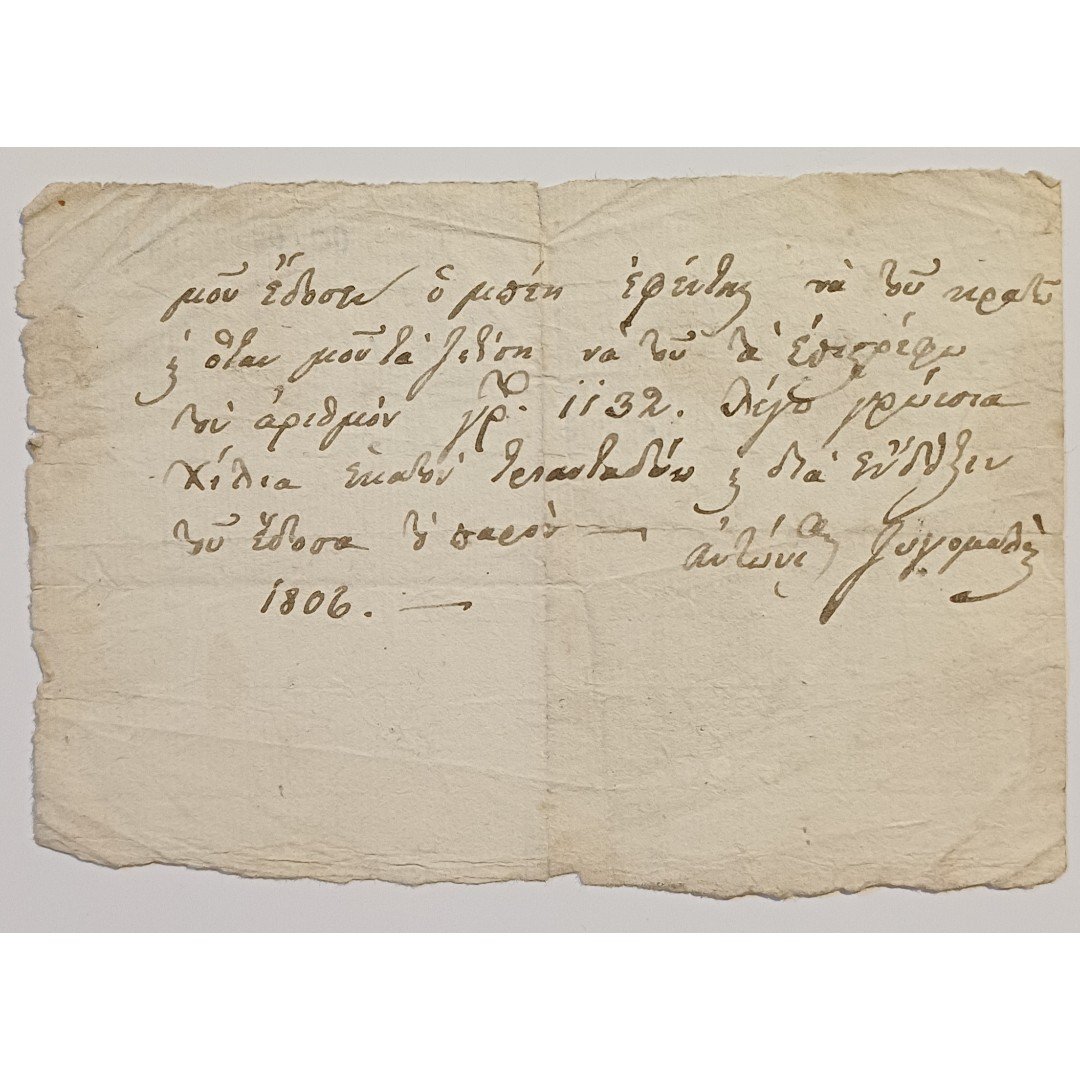 μοῦ ἔδοσεν ὁ μπέη ἐφέντης νὰ τοῦ κρατῶ
ϗ ὅταν μοῦ τὰ ζετίση νὰ τοῦ τὰ ἐπιστρέψω
τὸν ἀριθμόν γρ. 1132. λέγο γρώσια
χίλια ἑκατὸν τριανταδύω ϗ διὰ ἔνδιξιν
τοῦ ἔδοσα τὸ παρὸν —
ἀντώνις ζυγομαλὰς
1806. —